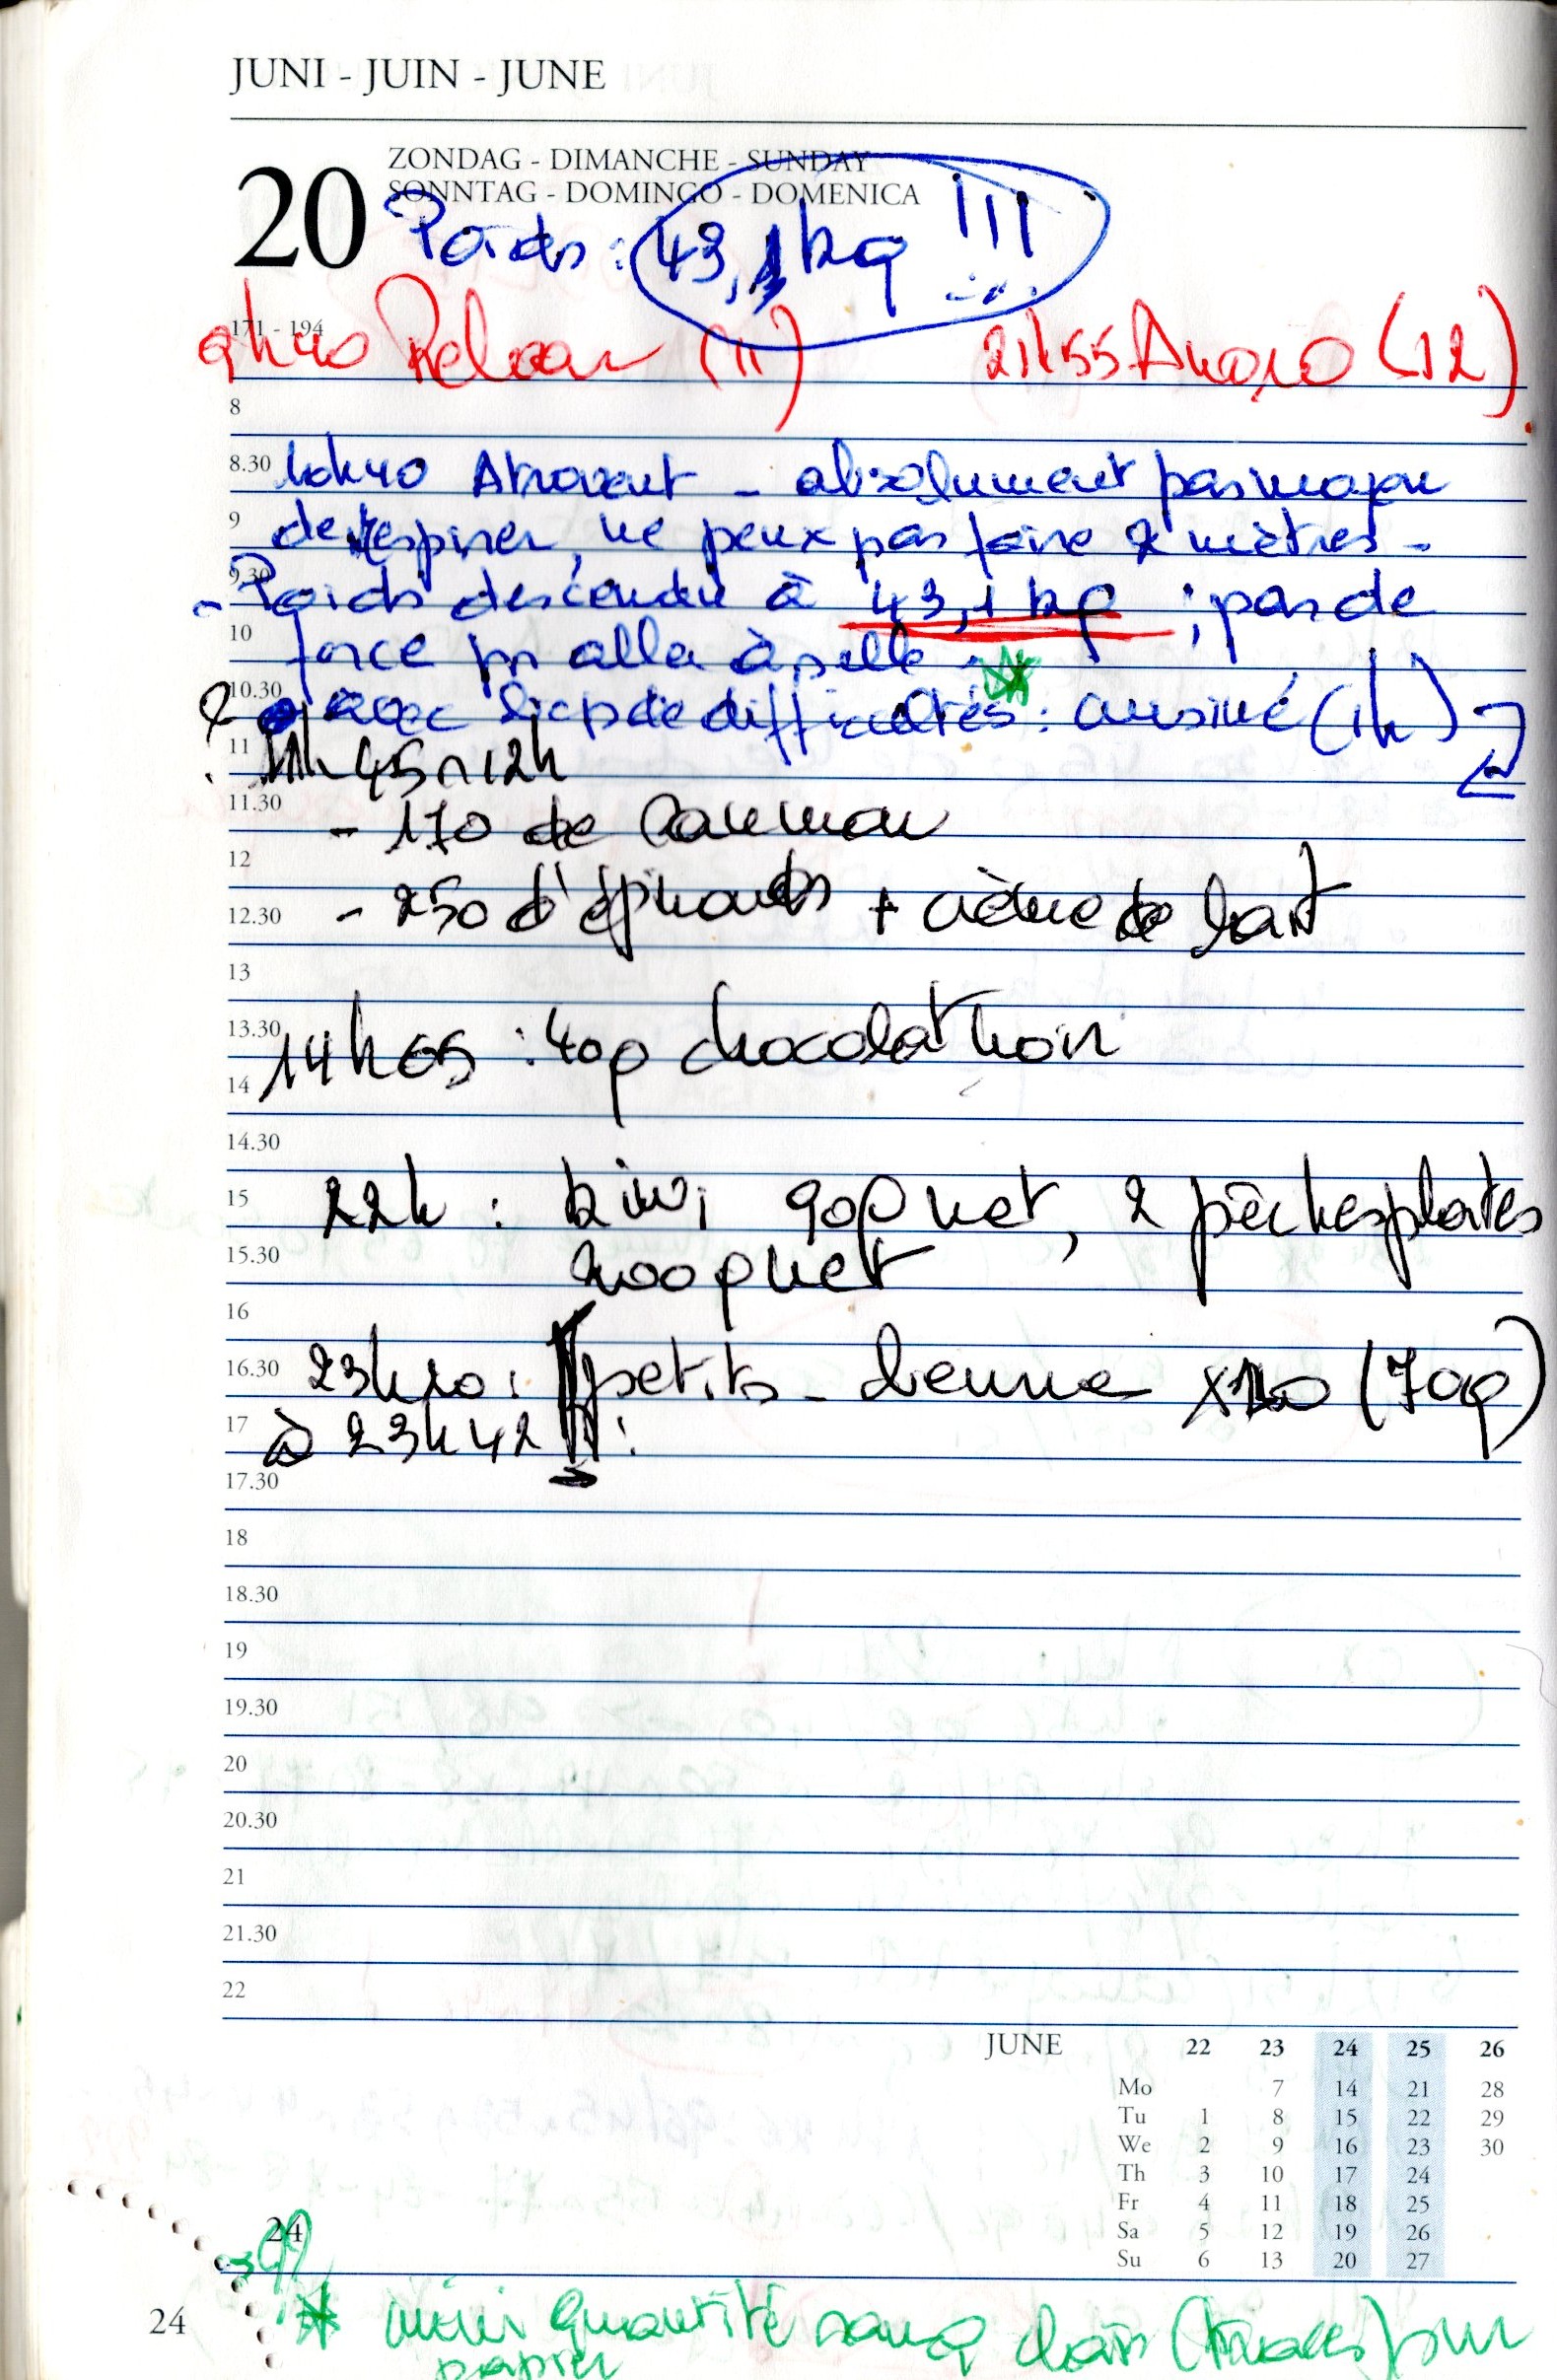 JUNI - JUIN - JUNE
20
ZONDAG - DIMANCHE - SUNDAY
SONNTAG - DOMINGO - DOMENICA
Poids : 43,1 kg !!!
171 - 194
9h40 Relvar (11) 21h55 Anoro (12)
8
8.30
10h40 Atrovent - absolument pas moyen
9
de respirer, ne peux pas faire 2 mètres -
9.30
- Poids descendu à 43,1 kg ; pas de
10
force pr aller à selle
10.30
avec de difficultés : cuisiné (1h)
11
? 11h45 12h
11.30
- 170 de saumon
12
12.30
- 250 d'épinards + crème de lait
13
13.30
14h05 : 40g chocolat noir
14
14.30
15
22h : kiwi 90g net, 2 pêches plates
15.30
200g net
16
16.30
23h20 : petits-beurre x10 (70g)
17
à 23h42 :
17.30
18
18.30
19
19.30
20
20.30
21
21.30
22
JUNE 22 23 24 25 26
Mo 7 14 21 28
Tu 1 8 15 22 29
We 2 9 16 23 30
Th 3 10 17 24
Fr 4 11 18 25
Sa 5 12 19 26
Su 6 13 20 27
24
24
* mini quantité sang clair (traces) sur
papier